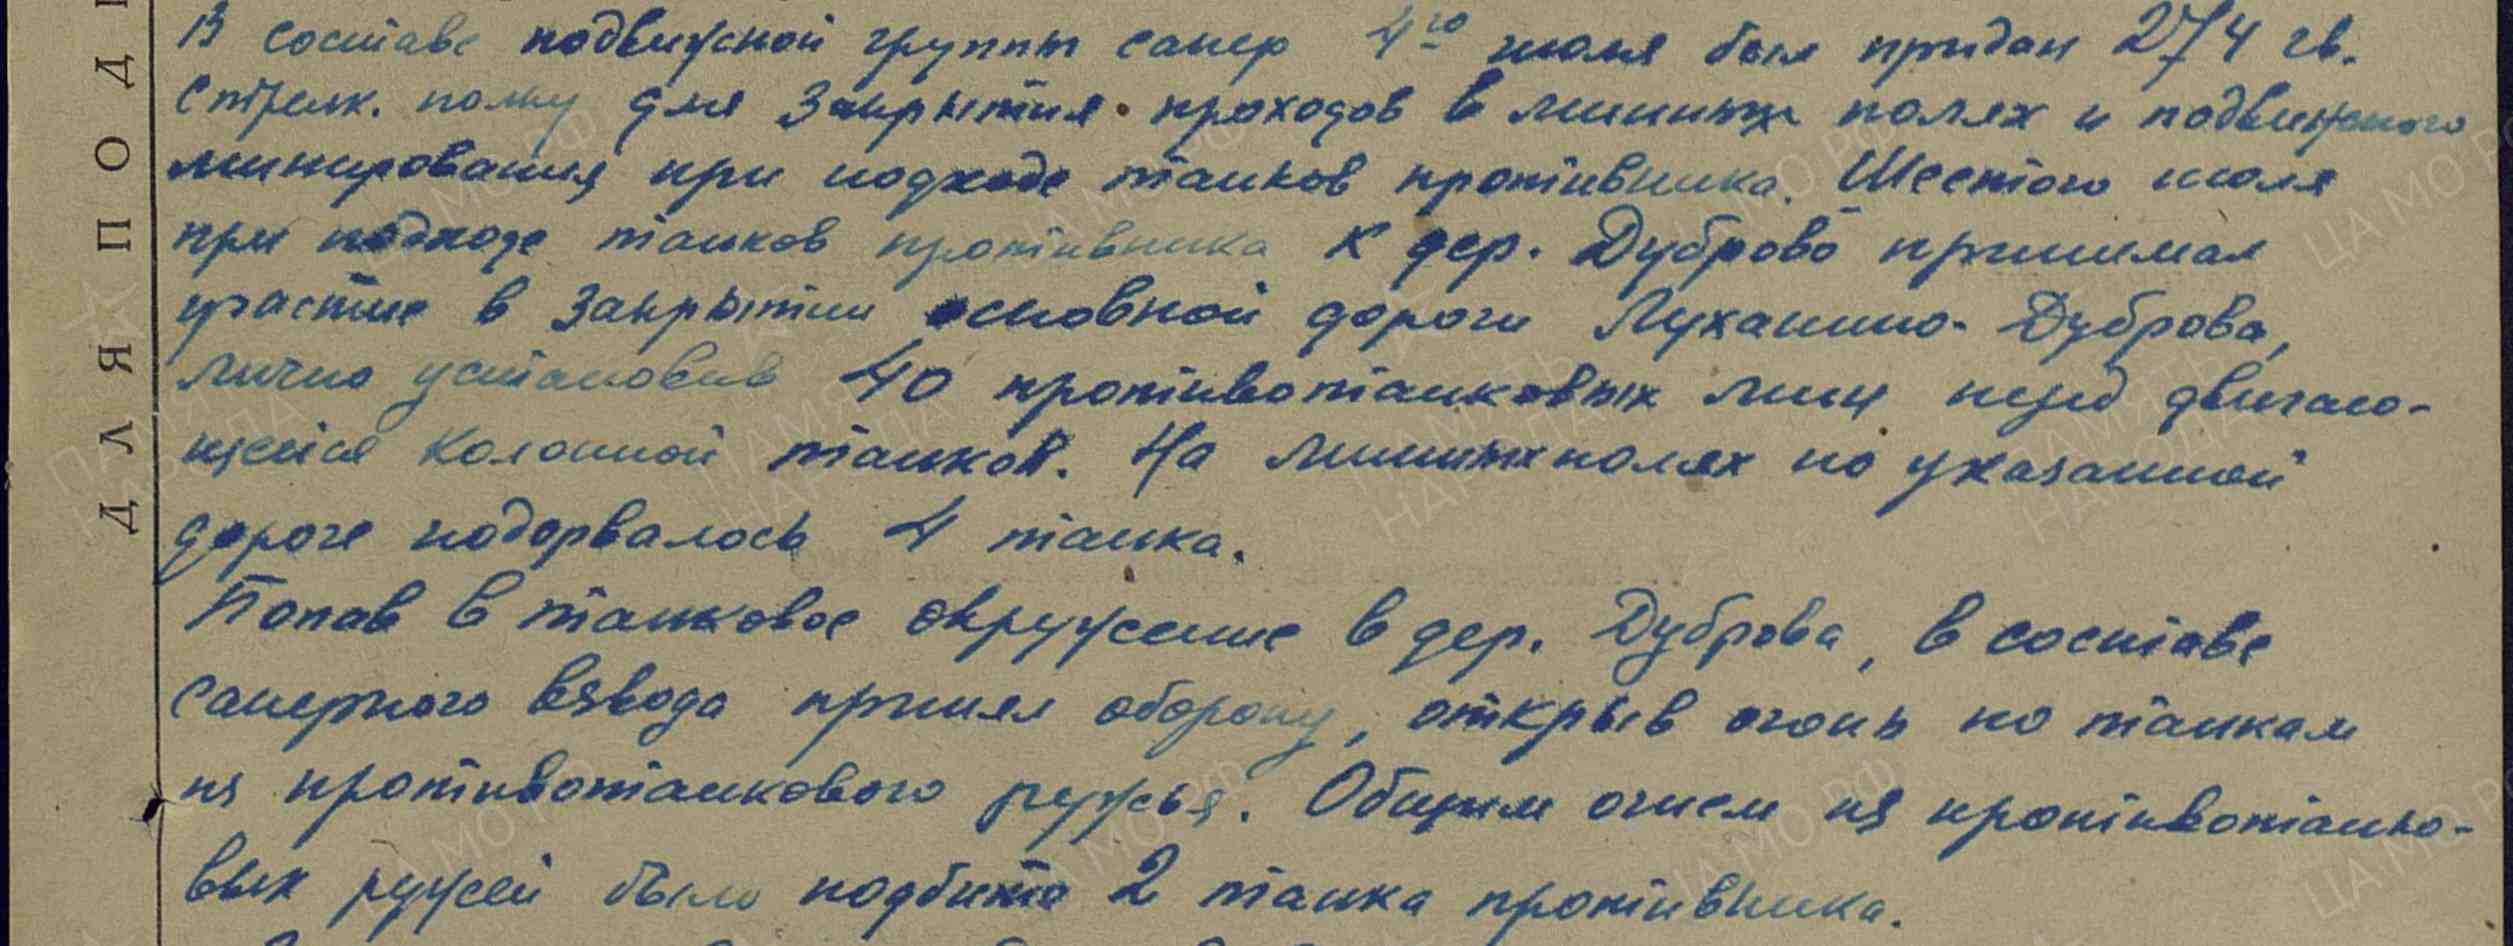 В составе подвижной группы сапер 4го июля был придан 274 гв.
Стрелк. полку для закрытия проходов в минных полях и подвижного
минирования при подходе танков противника. Шестого июля
при подходе танков противника к дер. Дуброво принимал
участие в закрытии основной дороги Луханино-Дуброва,
лично установив 40 противотанковых мин перед двигаю-
щейся колонной танков. На минных полях по указанной
дороге подорвалось 4 танка.
Попав в танковое окружение в дер. Дуброва, в составе
саперного взвода принял оборону, открыв огонь по танкам
из противотанкового ружья. Общим огнем из противотанко-
вых ружей было подбито 2 танка противника.
ДЛЯ ПОД
ЦА МО РФ
ПАМЯТЬ
НАРОДА